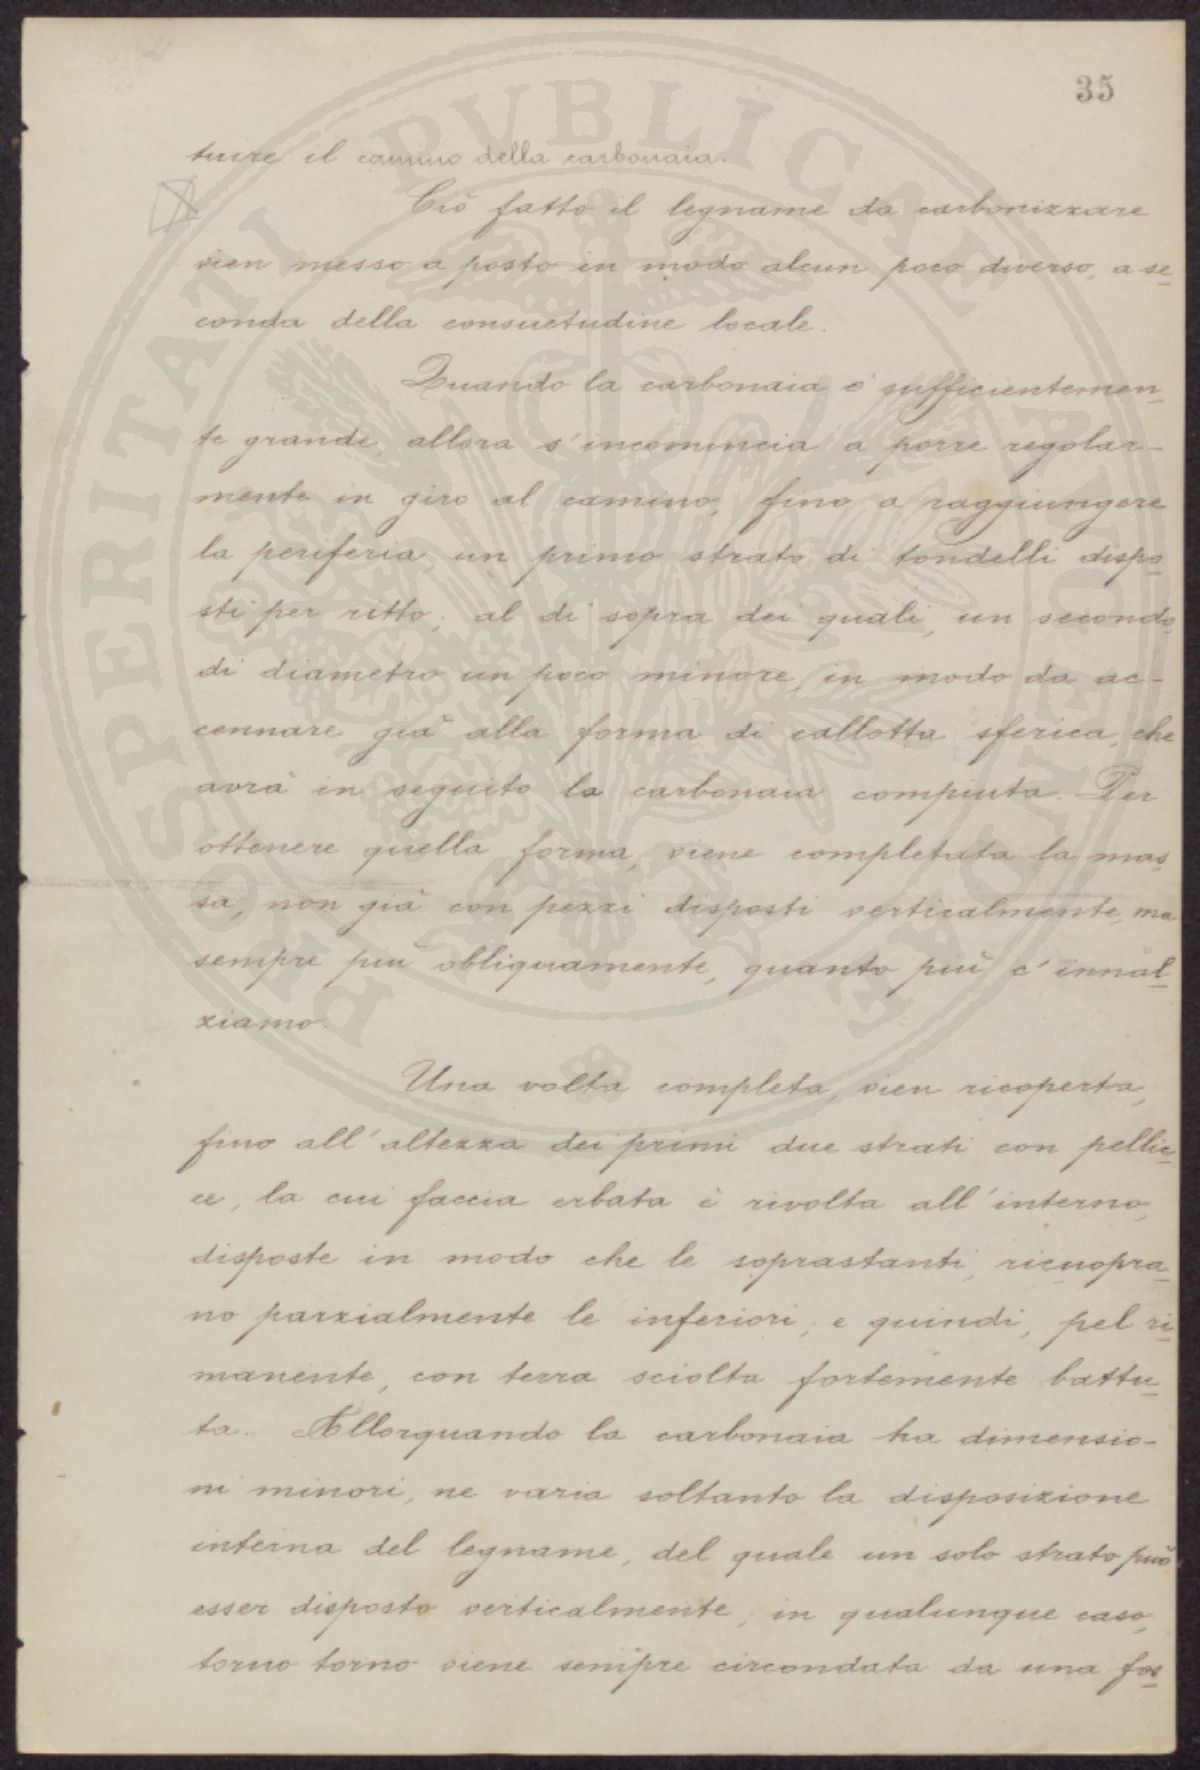 35
tuire il camino della carbonaia.
Ciò fatto il legname da carbonizzare
vien messo a posto in modo alcun poco diverso, a se-
conda della consuetudine locale.
Quando la carbonaia è sufficientemen-
te grande, allora s'incomincia a porre regolar-
mente in giro al camino, fino a raggiungere
la periferia, un primo strato di tondelli dispo-
sti per ritto; al di sopra dei quali, un secondo
di diametro un poco minore, in modo da ac-
cennare già alla forma di callotta sferica, che
avrà in seguito la carbonaia compiuta. Per
ottenere quella forma, viene completata la mas-
sa, non già con pezzi disposti verticalmente, ma
sempre più obliquamente, quanto più c'innal-
ziamo.
Una volta completa, vien ricoperta,
fino all'altezza dei primi due strati con pellic-
ce, la cui faccia erbata è rivolta all'interno,
disposte in modo che le soprastanti, ricuopra-
no parzialmente le inferiori; e quindi, pel ri-
manente, con terra sciolta fortemente battu-
ta. Allorquando la carbonaia ha dimensio-
ni minori, ne varia soltanto la disposizione
interna del legname, del quale un solo strato può
esser disposto verticalmente; in qualunque caso,
torno torno viene sempre circondata da una fos-
PROSPERITATI PVBLICAE AVGENDAE